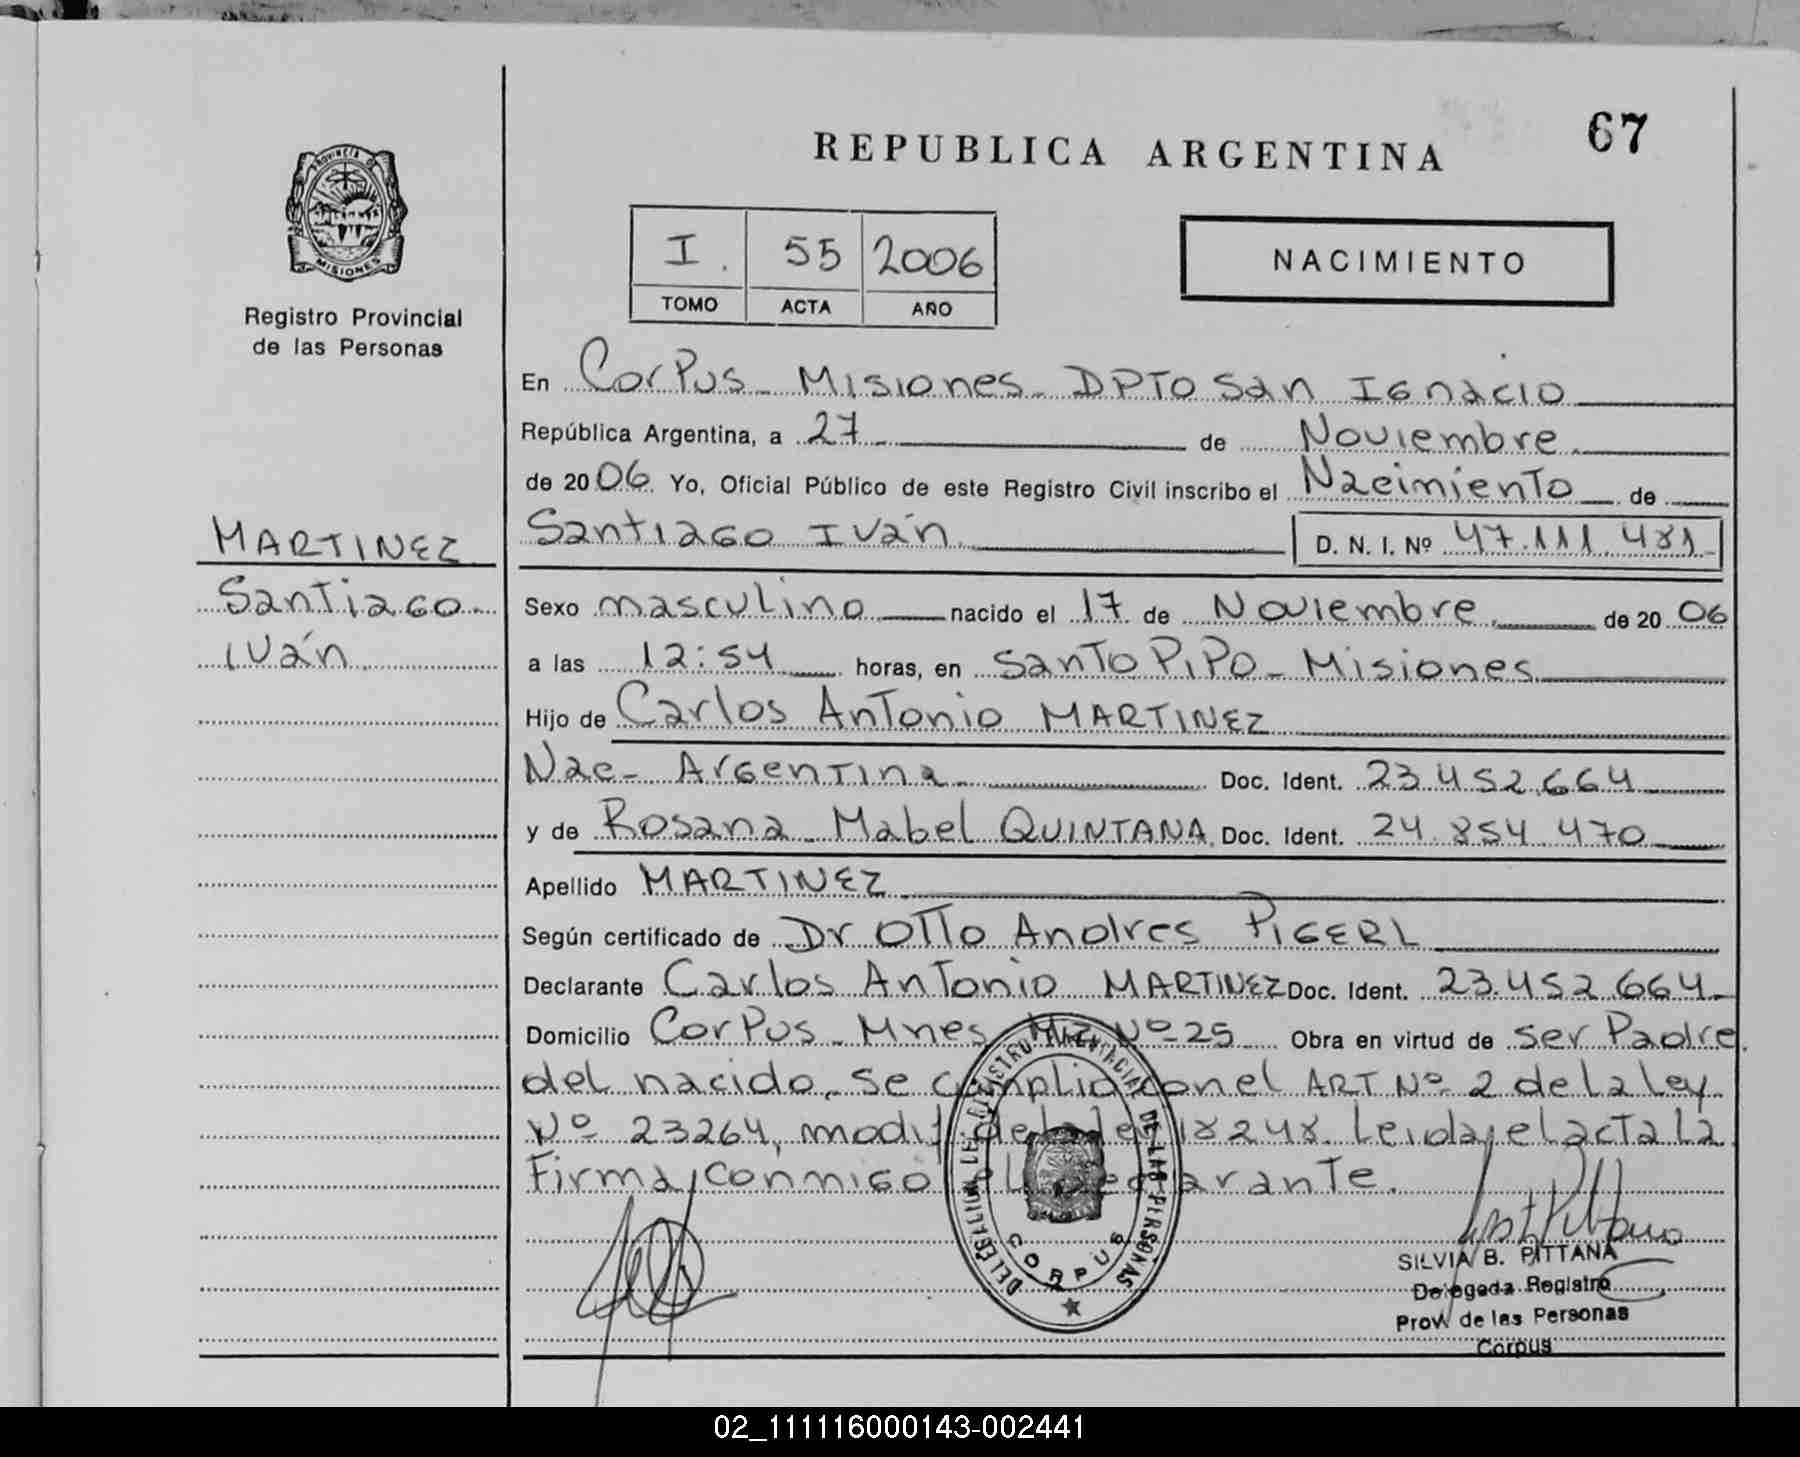 67
REPUBLICA ARGENTINA
PROVINCIA DE
MISIONES
Registro Provincial
de las Personas
I. 55 2006
TOMO ACTA AÑO
NACIMIENTO
En Corpus - Misiones - DPTO San Ignacio
República Argentina, a 27 de Noviembre
de 2006. Yo, Oficial Público de este Registro Civil inscribo el Nacimiento de
MARTINEZ
Santiago
Iván
Santiago Iván D. N. I. Nº 47.111.481
Sexo masculino nacido el 17 de Noviembre de 2006
a las 12:54 horas, en Santo Pipó - Misiones
Hijo de Carlos Antonio MARTINEZ
Nac - Argentina Doc. Ident. 23.452.664
y de Rosana Mabel QUINTANA Doc. Ident. 24.854.470
Apellido MARTINEZ
Según certificado de Dr Otto Andres PIGERL
Declarante Carlos Antonio MARTINEZ Doc. Ident. 23.452.664
Domicilio Corpus - Mnes Mz Nº 25 Obra en virtud de ser Padre
del nacido, se cumplio con el ART Nº 2 de la ley
Nº 23264, modif de la ley 18248. Leida el acta la
Firma conmigo el declarante.
DELEGACION DEL REGISTRO PROVINCIAL DE LAS PERSONAS
CORPUS
SILVIA B. PITTANA
Delegada Registro
Prov. de las Personas
Corpus
02_111116000143-002441